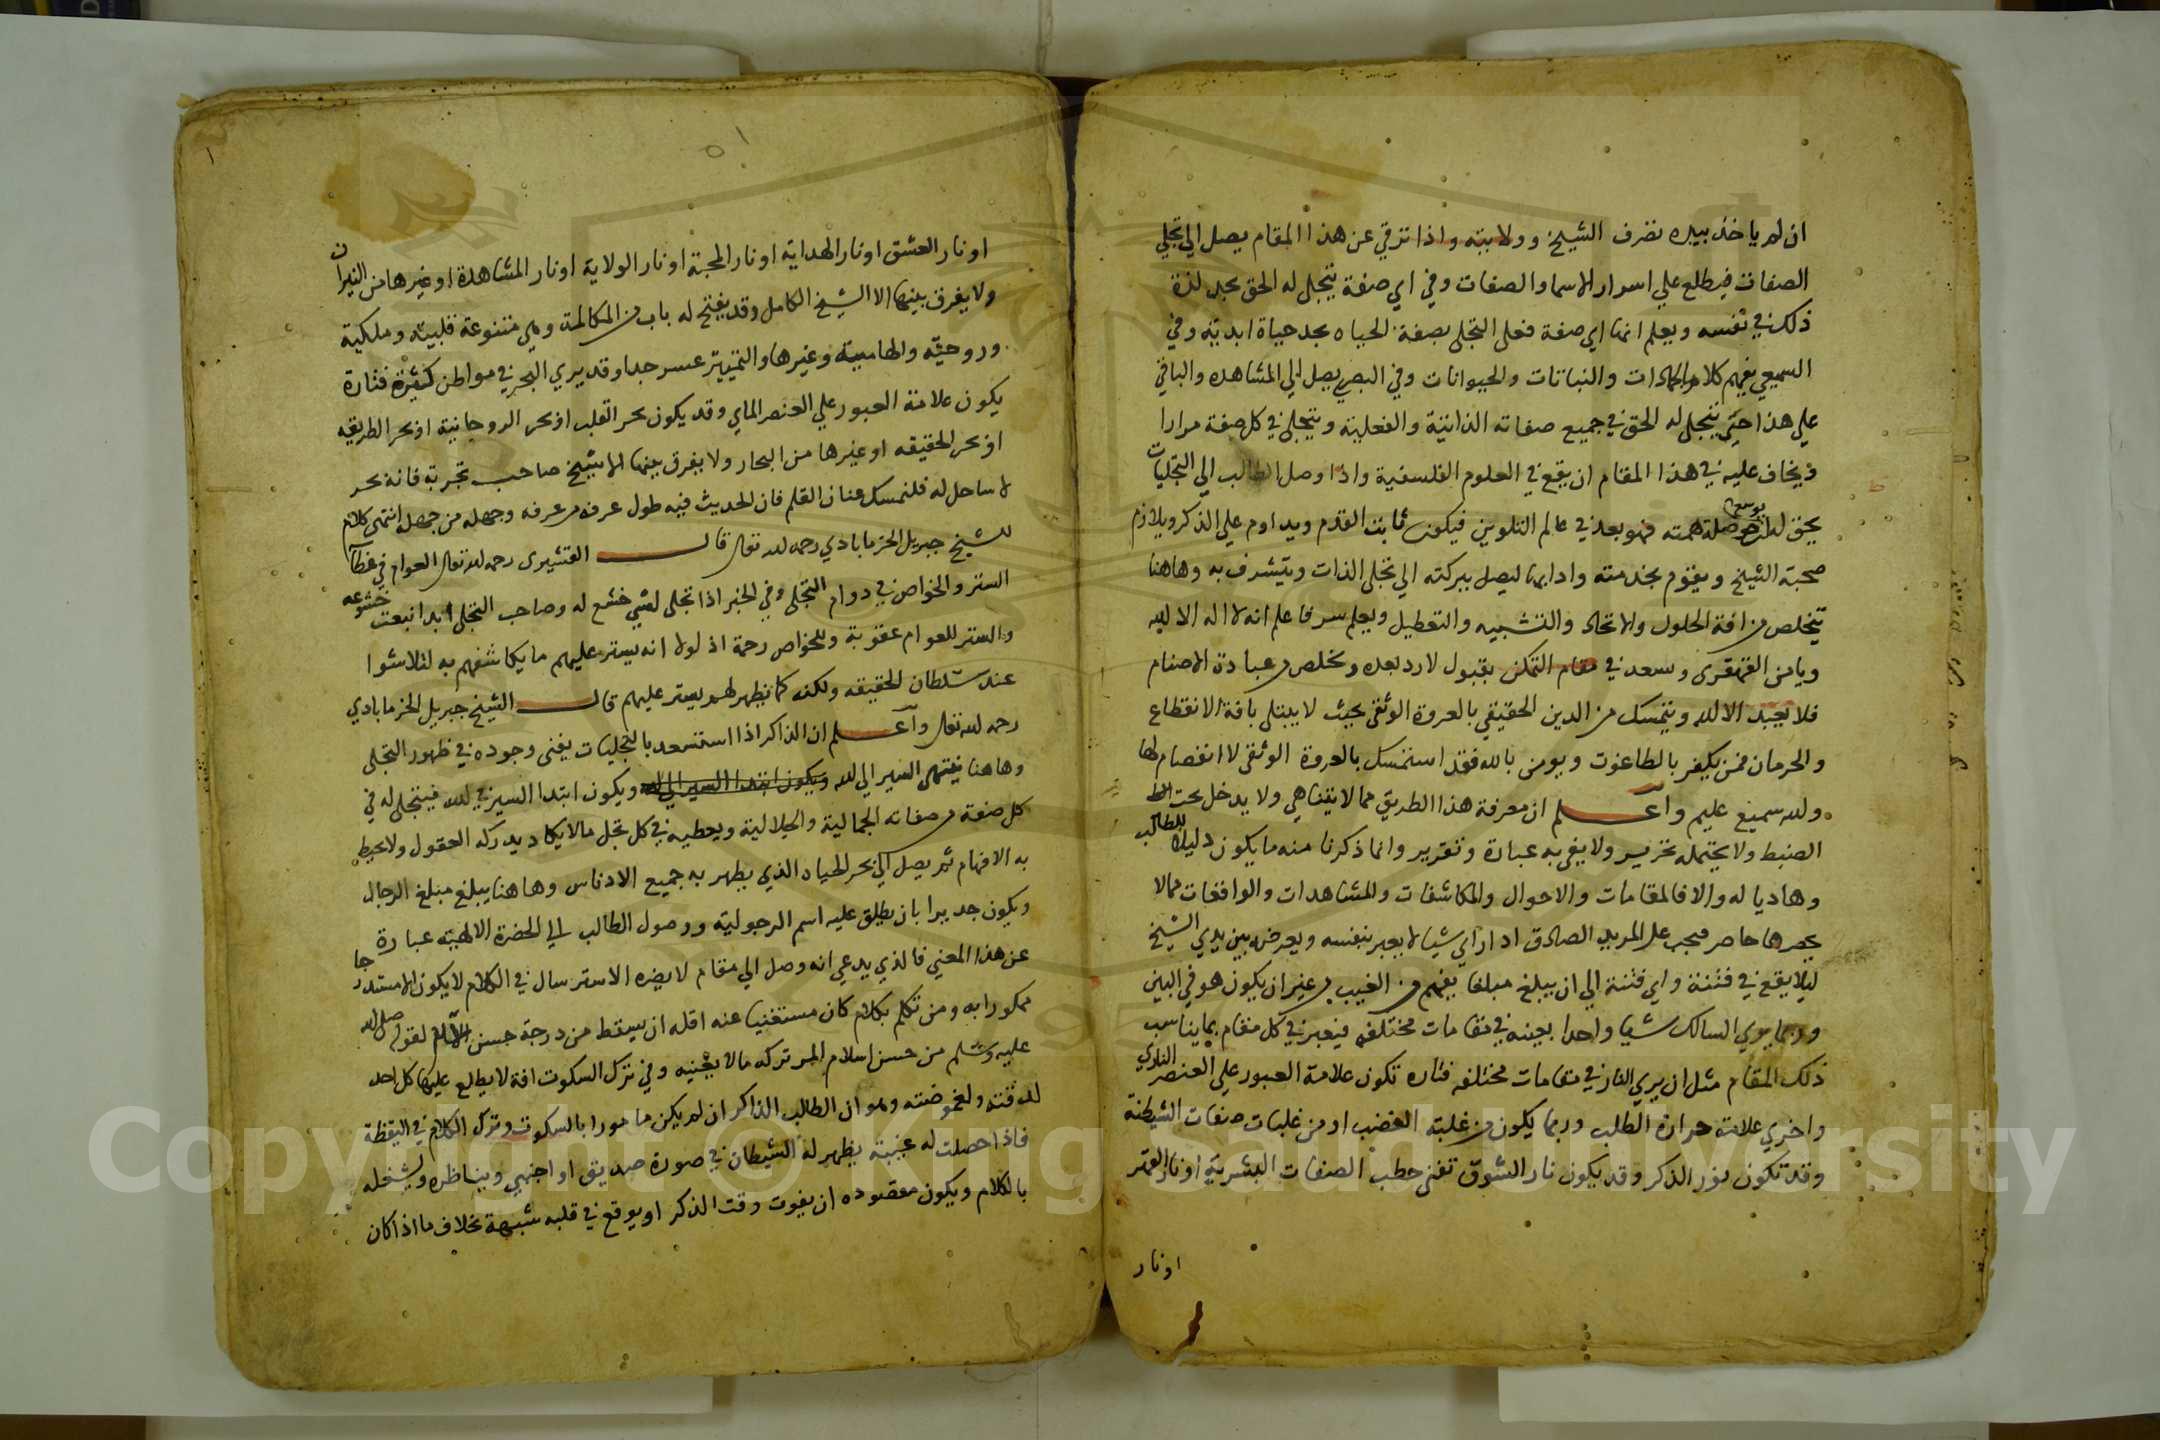 ان لم ياخذ بيده تصرف الشيخ وولايته واذا ترقي عن هذا المقام يصل الي تجلي
الصفات فيطلع علي اسرار الاسما والصفات وفي اي صفة يتجلى له الحق يجد لذة
ذلك في نفسه ويعلم انها اي صفة فعلى التجلى بصفة الحياه يجد حياة ابدية وفي
السميعي يفهم كلام الجمادات والنباتات والحيوانات وفي البصر يصل الي المشاهده والباقي
علي هذا حتي يتجلى له الحق في جميع صفاته الذاتية والفعلية ويتجلى في كل صفة مرارا
ويخاف عليه في هذا المقام ان يقع في العلوم الفلسفية واذا وصل الطالب الي التجليات
يحق له همته فهو بعد في عالم التلوين فيكون ثابت القدم ويداوم علي الذكر ويلازم
صحبة الشيخ ويقوم بخدمته وادابها ليصل ببركته الي تجلى الذات ويتشرف به وهاهنا
يتخلص من افة الحلول والاتحاد والتشبيه والتعطيل ويعلم سر فاعلم انه لا اله الا الله
ويامن القهقرى وسعد في مقام التمكن بقبول لا رد بعده وتخلص من عبادة الاصنام
فلا يعبد الا الله ويتمسك من الدين الحقيقي بالعروة الوثقى بحيث لا يبتلى بافة الانقطاع
والحرمان فمن يكفر بالطاغوت ويومن بالله فقد استمسك بالعروة الوثقى لا انفصام لها
والله سميع عليم واعلم ان معرفة هذا الطريق مما لا يتناهي ولا يدخل تحت
الضبط ولا يحتمله تحرير ولا يفي به عبارة وتقرير وانما ذكرنا منه ما يكون دليلا للطالب
وهاديا له والا فالمقامات والاحوال والمكاشفات والمشاهدات والواقعات مما لا
يحصرها حاصر فيجب على المريد الصادق اذا راي شيا لا يعبر بنفسه ويعرضه بين يدي الشيخ
ليلا يقع في فتنة واي فتنة الي ان يبلغ مبلغا يفهم من الغيب من غير ان يكون هو في البين
وربما يري السالك شيا واحدا بعينه في مقامات مختلفه فيعبر في كل مقام بما يناسب
ذلك المقام مثل ان يري النار في مقامات مختلفه فتاره تكون علامة العبور علي العنصر الناري
واخري علامة حرارة الطلب وربما يكون من غلبة الغضب او من غلبات صفات الشيطنة
وقد تكون نور الذكر وقد يكون نار الشوق تفني حطب الصفات البشرية او نار القهر
او نار
٥١
١
او نار العشق او نار الهداية او نار المحبة او نار الولاية او نار المشاهدة او غيرها من النيران
ولا يفرق بينها الا الشيخ الكامل وقد يفتح له باب من المكالمة وهي متنوعة قلبية وملكية
وروحية والهامية وغيرها والتمييز عسر جدا وقد يري البحر في مواطن كثيرة فتارة
يكون علامة العبور علي العنصر الماي وقد يكون بحر القلب او بحر الروحانية او بحر الطريقه
او بحر الحقيقه او غيرها من البحار ولا يفرق بينها الا شيخ صاحب تجربة فانه بحر
لا ساحل له فلنمسك عنان القلم فان الحديث فيه طول عرفه من عرفه وجهله من جهل انتهى كلام
الشيخ جبريل الخرماباذي رحمه الله تعالى قال القشيري رحمه الله تعالى العوام في غطا
الستر والخواص في دوام التجلى وفي الخبر اذا تجلى لشي خشع له وصاحب التجلى ابدا نعت خشوعه
والستر للعوام عقوبة وللخواص رحمة اذ لولا انه يستر عليهم ما يكاشفهم به لتلاشوا
عند سلطان الحقيقه ولكنه كما يظهر لهم يستر عليهم قال الشيخ جبريل الخرماباذي
رحمه الله تعالى واعلم ان الذاكر اذا استسعد بالتجليات يفنى وجوده في ظهور التجلى
وهاهنا ينتهى السير الي الله ويكون ابتدا السير الي الله ويكون ابتدا السير في الله فيتجلى له في
كل صفة من صفاته الجمالية والجلالية ويعطيه في كل تجل ما لا يكاد يدركه العقول ولا يحيط
به الافهام ثم يصل الي بحر الحياه الذي يطهر به جميع الادناس وهاهنا يبلغ مبلغ الرجال
ويكون جديرا بان يطلق عليه اسم الرجولية ووصول الطالب الي الحضرة الالهية عبارة
عن هذا المعني فالذي يدعي انه وصل الي مقام لا يضره الاسترسال في الكلام لا يكون الا مستدرجا
ممكورا به ومن تكلم بكلام كان مستغنيا عنه اقله ان يسقط من درجة حسن الاسلام لقوله صلى الله
عليه وسلم من حسن اسلام المر تركه ما لا يعنيه وفي ترك السكوت افة لا يطلع عليها كل احد
لدقته ولغموضته وهو ان الطالب الذاكر ان لم يكن مامورا بالسكوت وترك الكلام في اليقظة
فاذا حصلت له غيبة يظهر له الشيطان في صورة صديق او اجنبي ويناظره ويشغله
بالكلام ويكون مقصوده ان يفوت وقت الذكر او يوقع في قلبه شبهة بخلاف ما اذا كان
Copyright © King Saud University